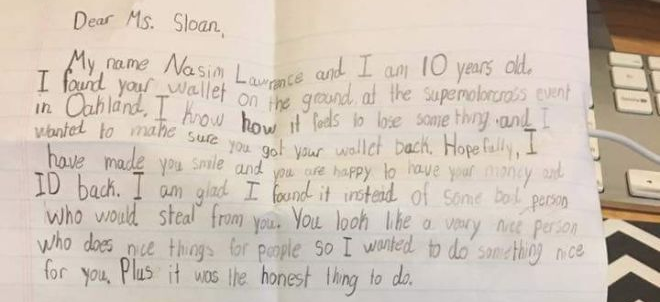 Dear Ms. Sloan,
My name Nasim Lawrence and I am 10 years old.
I found your wallet on the ground at the supemotorcross event
in Oahland. I know how it feels to lose something and I
wanted to make sure you got your wallet back. Hopefully, I
have made you smile and you are happy to have your money and
ID back. I am glad I found it instead of some bad person
who would steal from you. You look like a veary nice person
who does nice things for people so I wanted to do something nice
for you. Plus it was the honest thing to do.